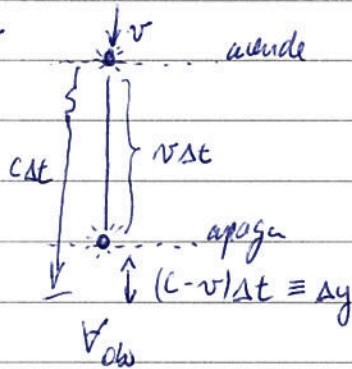 v
acende
cΔt
vΔt
apaga
(c-v)Δt ≡ Δy
Obs